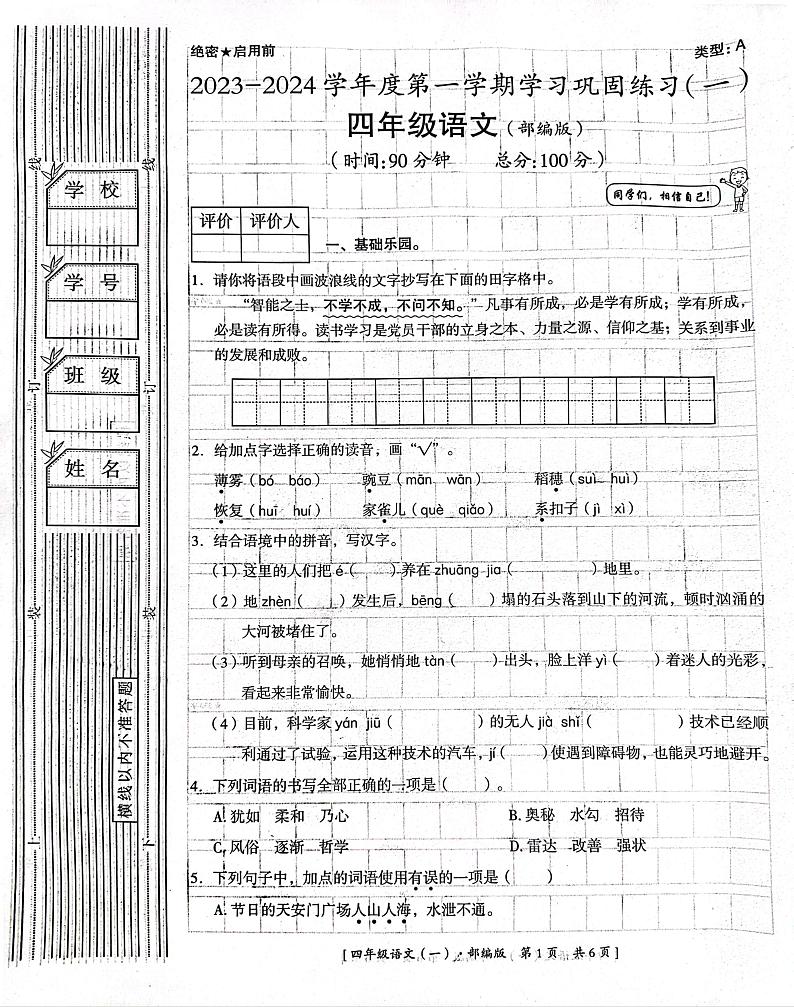 绝密★启用前
类型：A
2023-2024学年度第一学期学习巩固练习(一)
四年级语文（部编版）
（时间:90分钟 总分:100分）
同学们，相信自己！
评价 评价人
一、基础乐园。
1．请你将语段中画波浪线的文字抄写在下面的田字格中。
“智能之士，不学不成，不问不知。”凡事有所成，必是学有所成；学有所成，
必是读有所得。读书学习是党员干部的立身之本、力量之源、信仰之基；关系到事业
的发展和成败。
2．给加点字选择正确的读音，画“√”。
薄雾（bó báo） 豌豆（mān wān） 稻穗（suì huì）
恢复（huī huí） 家雀儿（què qiǎo） 系扣子（jì xì）
3．结合语境中的拼音，写汉字。
（1）这里的人们把é（ ）养在zhuāng jia（ ）地里。
（2）地zhèn（ ）发生后，bēng（ ）塌的石头落到山下的河流，顿时汹涌的
大河被堵住了。
（3）听到母亲的召唤，她悄悄地tàn（ ）出头，脸上洋yì（ ）着迷人的光彩，
看起来非常愉快。
（4）目前，科学家yán jiū（ ）的无人jià shǐ（ ）技术已经顺
利通过了试验，运用这种技术的汽车，jí（ ）使遇到障碍物，也能灵巧地避开。
4．下列词语的书写全部正确的一项是（ ）。
A. 犹如 柔和 乃心 B. 奥秘 水勾 招待
C. 风俗 逐渐 哲学 D. 雷达 改善 强状
5．下列句子中，加点的词语使用有误的一项是（ ）
A. 节日的天安门广场人山人海，水泄不通。
[四年级语文（一）·部编版 第1页 共6页]
学校
学号
班级
姓名
线
订
装
上
线
订
装
下
横线以内不准答题